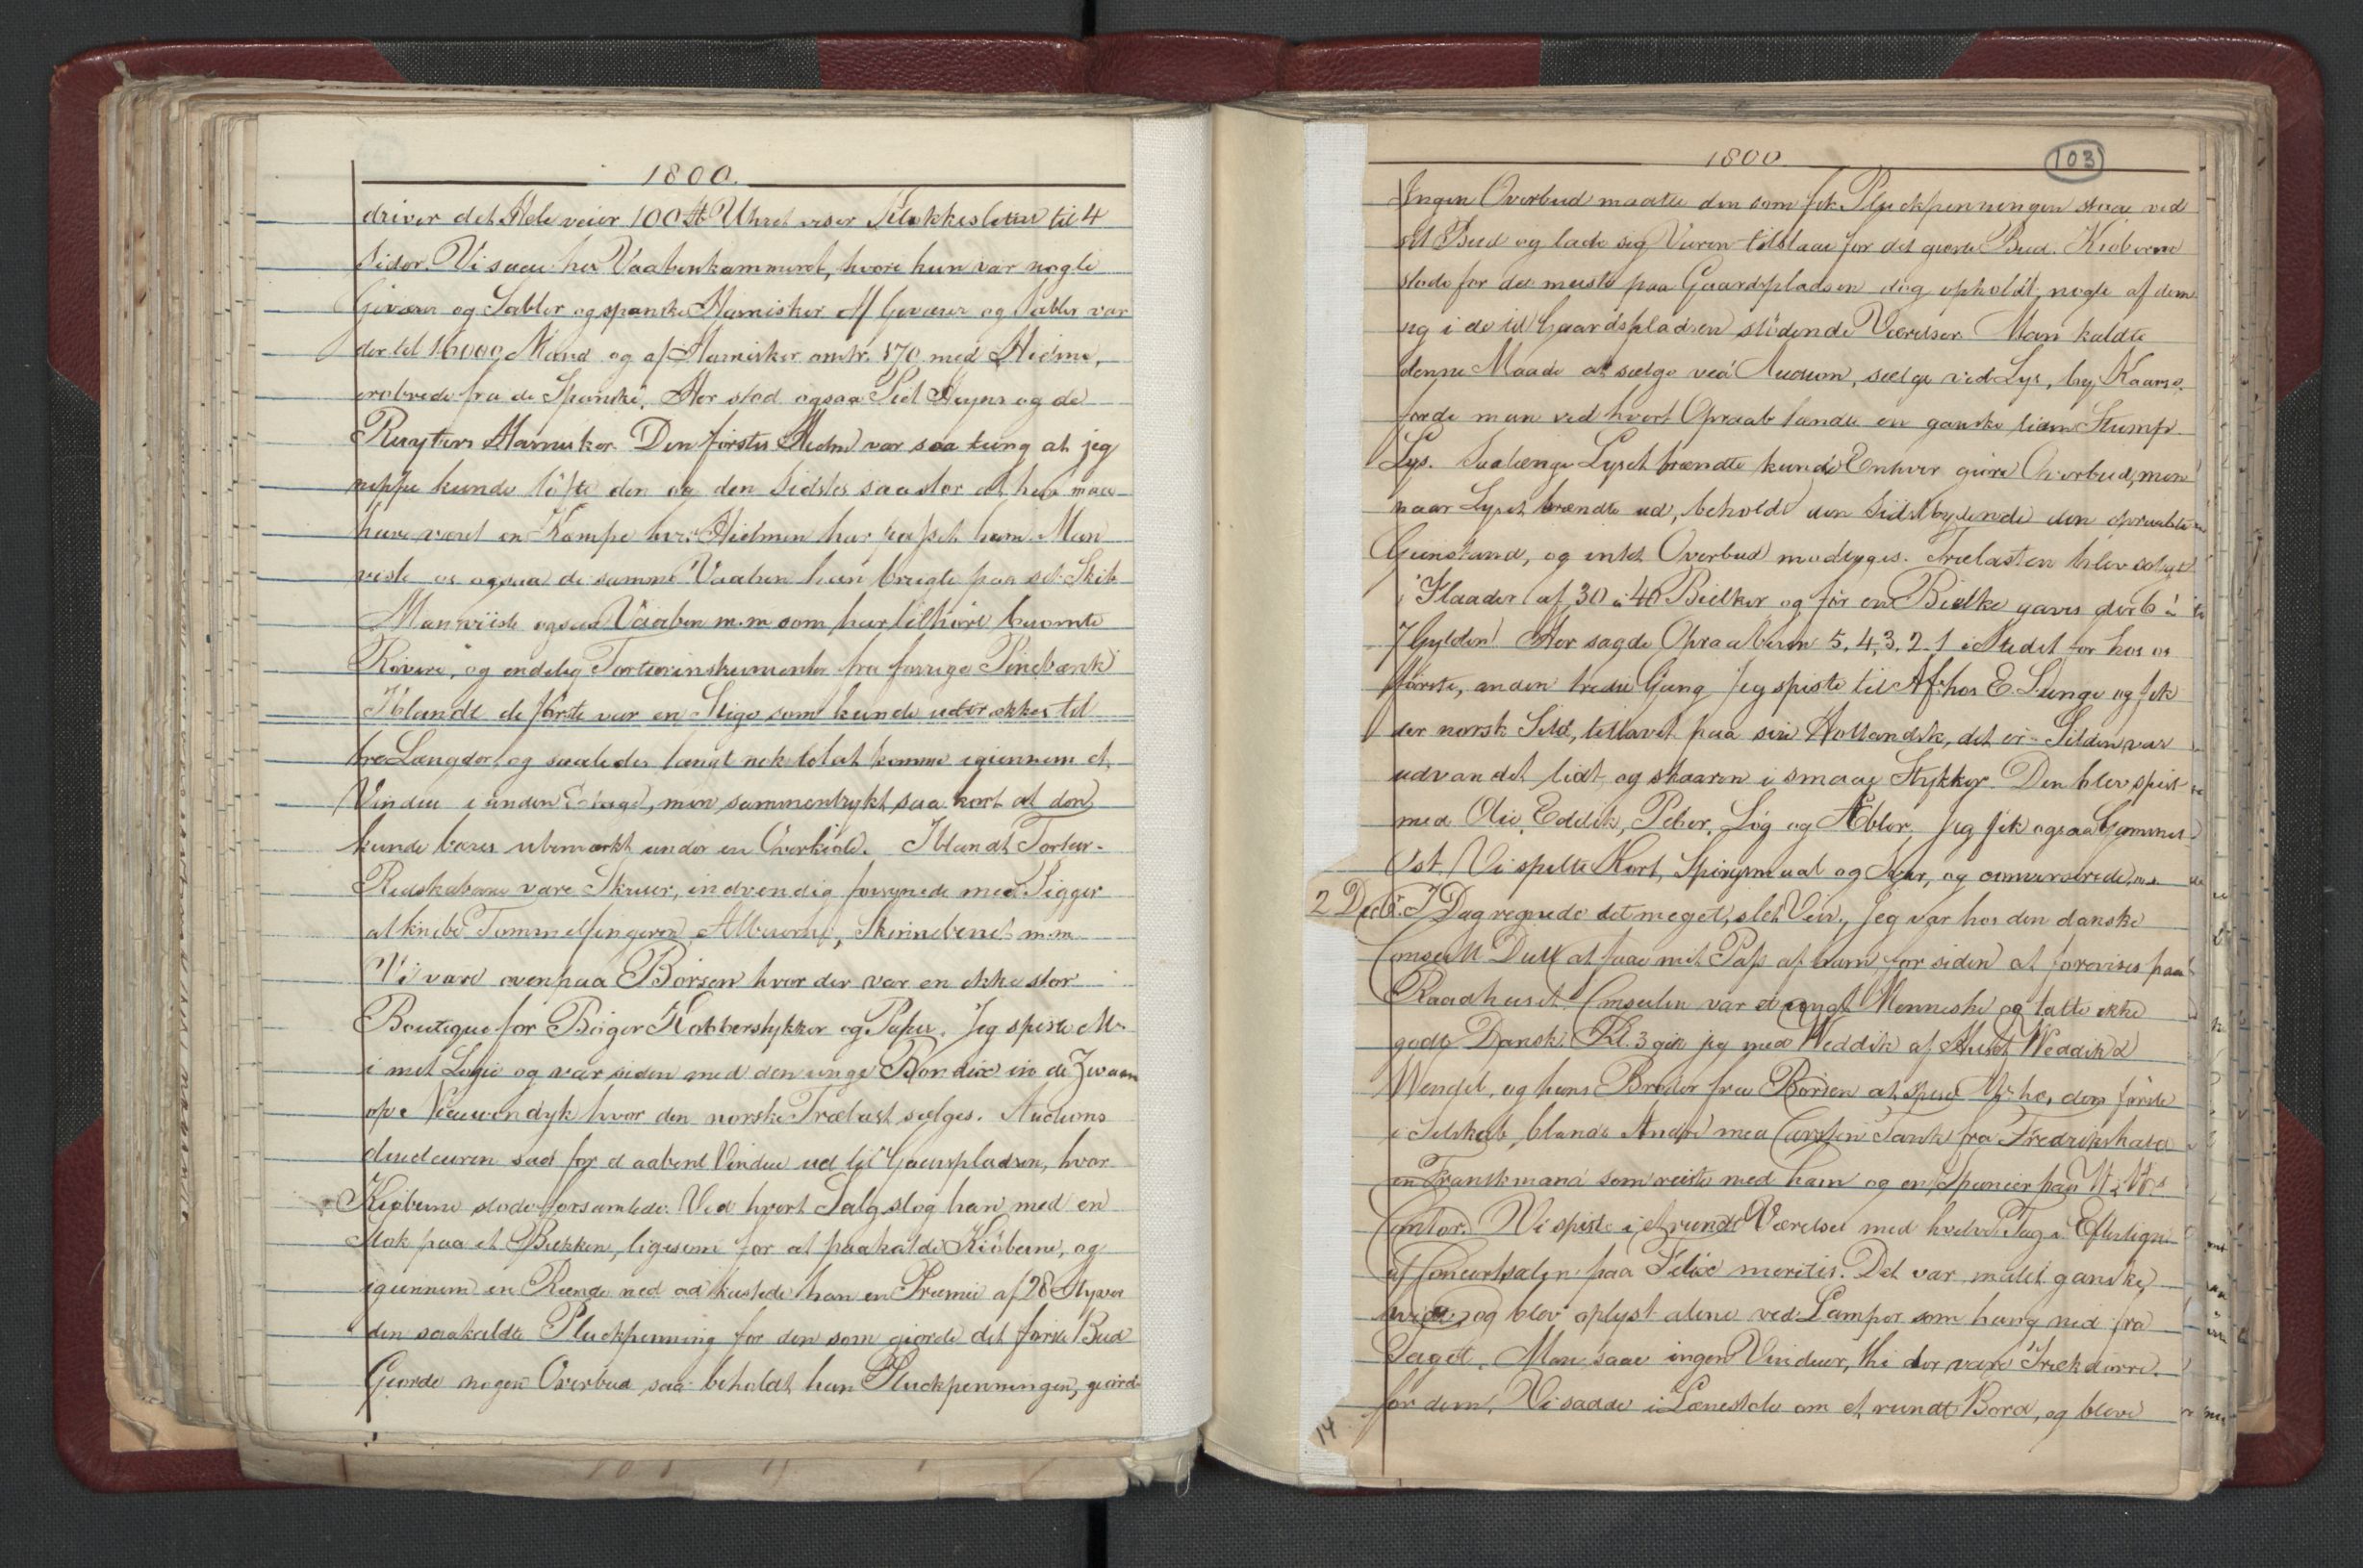 1800.
driver det Hele veier 100 ℔ Uhret viser Klokkesletter til 4
Sider. Vi saae her Vaabenkammeret, hvori kun var nogle
Geværer og Sabler og spanske Harnisker Af Geværer og Sabler var
der til 16000 Mand og af Harnisker omtr. 170 med Hielme,
erobrede fra de Spanske. Her stod ogsaa Piet Heyns og de
Ruyters Harnisker. Den førstes Hielm var saa tung at jeg
neppe kunde løfte den og den Sidstes saa stor at han maa
have været en Kæmpe hvis Hielmen har passet ham. Man
viste os ogsaa de samme Vaaben han brugte paa sit Skib
Man viiste ogsaa Vaaben m.m som har tilhørt berømte
Røvere, og endelig Torturinstrumenter fra forrige Pinebænk
Iblandt de første var en Stige som kunde udtrækkes til
tre Længder, og saaledes langt nok til at komme igiennem et
Vindue i anden Etage, men sammentrykt saa kort at den
kunde bæres ubemærkt under en Overkiole. Iblandt Tortur-
Redskaberne vare Skruer, indvendig forsynede med Pigger
at knibe Tommelfingeren, Albuerne, Skinnebenet m.m
Vi vare ovenpaa Børsen hvor der var en ikke stor
Boutique for Bøger Kobberstykker og Papir. Jeg spiste M.
i mit Logie og var siden med den unge Bordix in de Zwaan
op e Nieuwendyk hvor den norske Trælast sælges. Auctions
directeuren sad for et aabent Vindue ud til Gaardspladsen, hvor
Kiøberne stode forsamlede. Ved hvert Salg slog han med en
Stok paa et Bekken, ligesom for at paakalde Kiøberne, og
igiennem en Rende ned ad kastede han en Præmie af 28 Styver
den saakaldte Pluckpenning for den som giorde det første Bud
Giorde nogen Overbud saa beholdt han Pluckpenningen, giord
1800
103
Ingen Overbud maatte den som fik Pluckpenningen staae ved
sit Bud og lade sig Varen tilslaae for det giorte Bud. Kioberne
stode for det meste paa Gaardspladsen dog opholdt nogle af dem
sig i de til Gaardspladsen stødende Værelser. Man kaldte
denne Maade at sælge ved Auction, sælge ved Lys, by Kaarse,
fordi man ved hvert Opraab tændte en ganske liden Stump
Lys. Saalænge Lyset brændte kunde Enhver giøre Overbud, men
naar Lyset brændte ud, beholdt den Sidstbydende den opraabte
Gienstand, og intet Overbud modtoges. Trælasten blev solgt
i Flaader af 30 à 40 Bielker og for en Bielke gaves der 6 à
7 Gylden. Her sagde Opraaberen 5, 4, 3. 2. 1 i Stedet for hos os
første, anden tredie Gang. Jeg spiste til Af. hos E. Lunge og fik
der norsk Sild, tillavet paa sin Hollandsk, det er Silden var
udvandet lidt og skaaren i smaae Stykker. Den blev spist
med Olie, Eddik, Peber, Løg og Æbler. Jeg fik ogsaa Gammel
Ost. Vi spilte Kort, Spørgsmaal og Svar, og converserede
2 Decbr. I Dag regnede det meget, slet Veir. Jeg var hos den danske
Consul Dull at faae mit Pass af ham for siden at forevises paa
Raadhuset. Consulen var et ungt Menneske og talte ikke
godt Dansk. Kl. 3 gik jeg med Weddik af Huset Weddik &
Wendel, og hans Broder fra Børsen at spise M. hos den første
i Selskab, blandt Andre med Carsten Tank fra Fredrikshald
en Franskmand som reiste med ham og en Spanier paa W. & W.s
Contor. Vi spiste i et rundt Værelse med hvelvet Tag à Efterlign
af Concertsalen paa Felix meritis. Det var malet ganske
og blev oplyst alene ved Lamper som hang ned fra
Taget. Man saae ingen Vinduer, thi der vare Trækdørre
for dem. Vi sadde i Lænestole om et rundt Bord, og bleve
14